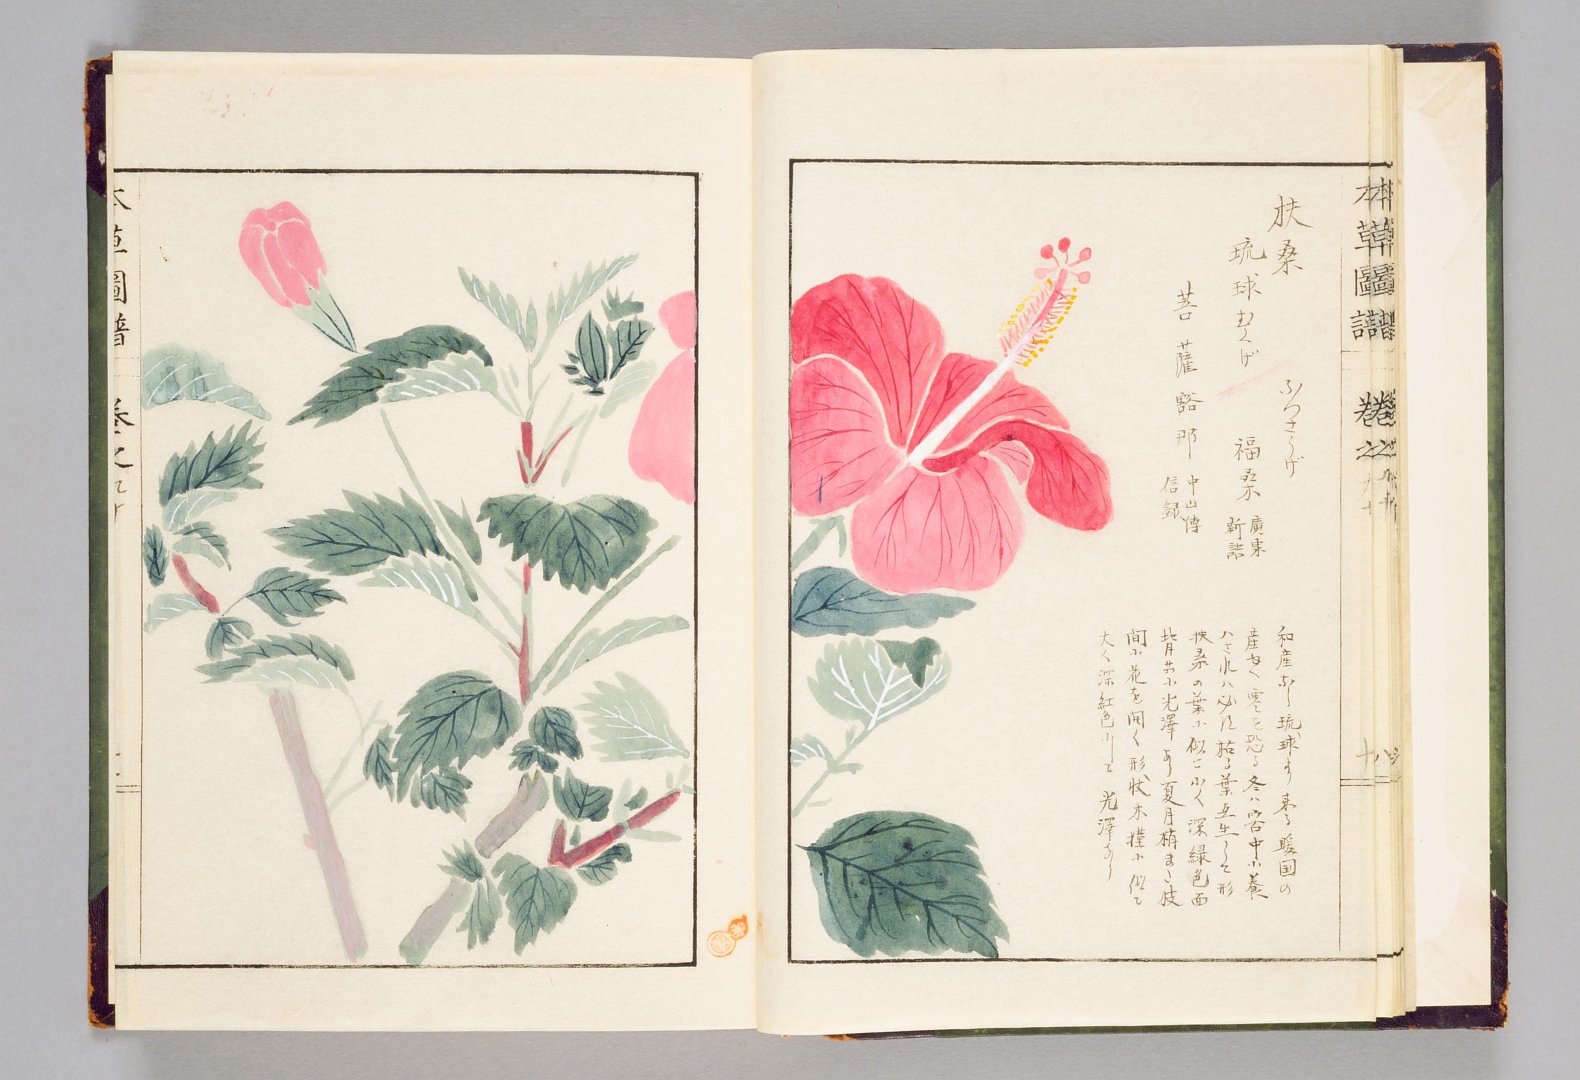 本草圖譜 卷之
扶桑 ぶつさうげ
琉球むくげ 福桑 廣東新語
菩薩豁那 中山傳信録
和産なし琉球より来る暖国の
産故寒を恐る冬ハ窖中に養
ハされハ必す枯る葉互生して形
扶桑の葉に似て小く深緑色面
背共に光澤あり夏月梢また枝
間に花を開く形状木槿に似て
大く深紅色にして光澤あり
十八
本草圖譜 卷之